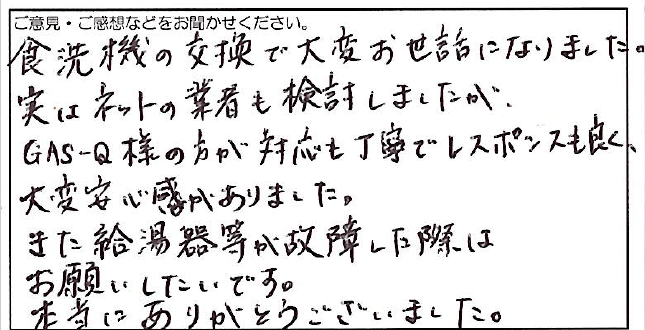 ご意見・ご感想などをお聞かせください。
食洗機の交換で大変お世話になりました。
実はネットの業者も検討しましたが、
GAS-Q様の方が対応も丁寧でレスポンスも良く、
大変安心感がありました。
また給湯器等が故障した際は
お願いしたいです。
本当にありがとうございました。